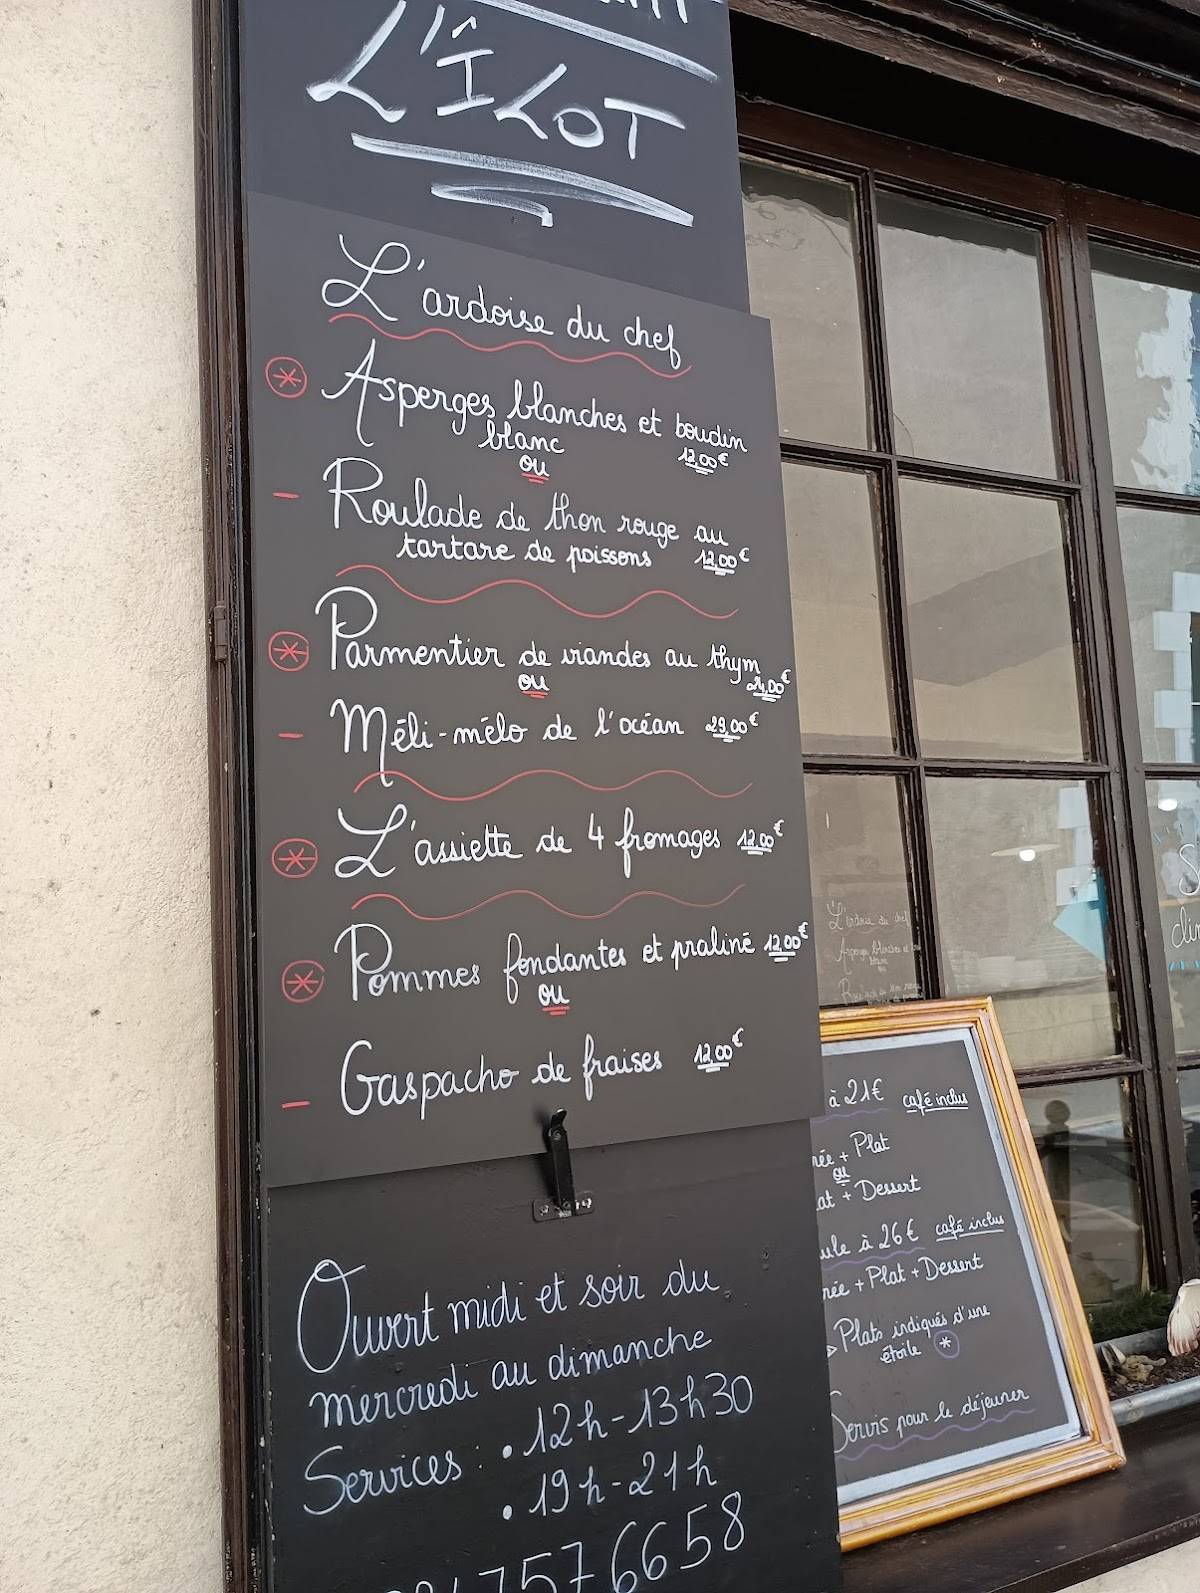 L'ÎLOT
L'ardoise du chef
* Asperges blanches et boudin
blanc 12,00€
ou
- Roulade de thon rouge au
tartare de poissons 12,00€
* Parmentier de viandes au thym
ou 24,00€
- Méli-mélo de l'océan 29,00€
* L'assiette de 4 fromages 12,00€
* Pommes fondantes et praliné 12,00€
ou
- Gaspacho de fraises 12,00€
Ouvert midi et soir du
mercredi au dimanche
Services : • 12h-13h30
• 19h-21h
7576658
à 21€ café inclus
rée + Plat
ou
at + Dessert
ule à 26€ café inclus
rée + Plat + Dessert
Plats indiqués d'une
étoile *
Servis pour le déjeuner
L'ardoise du chef
Asperges blanches et
blanc